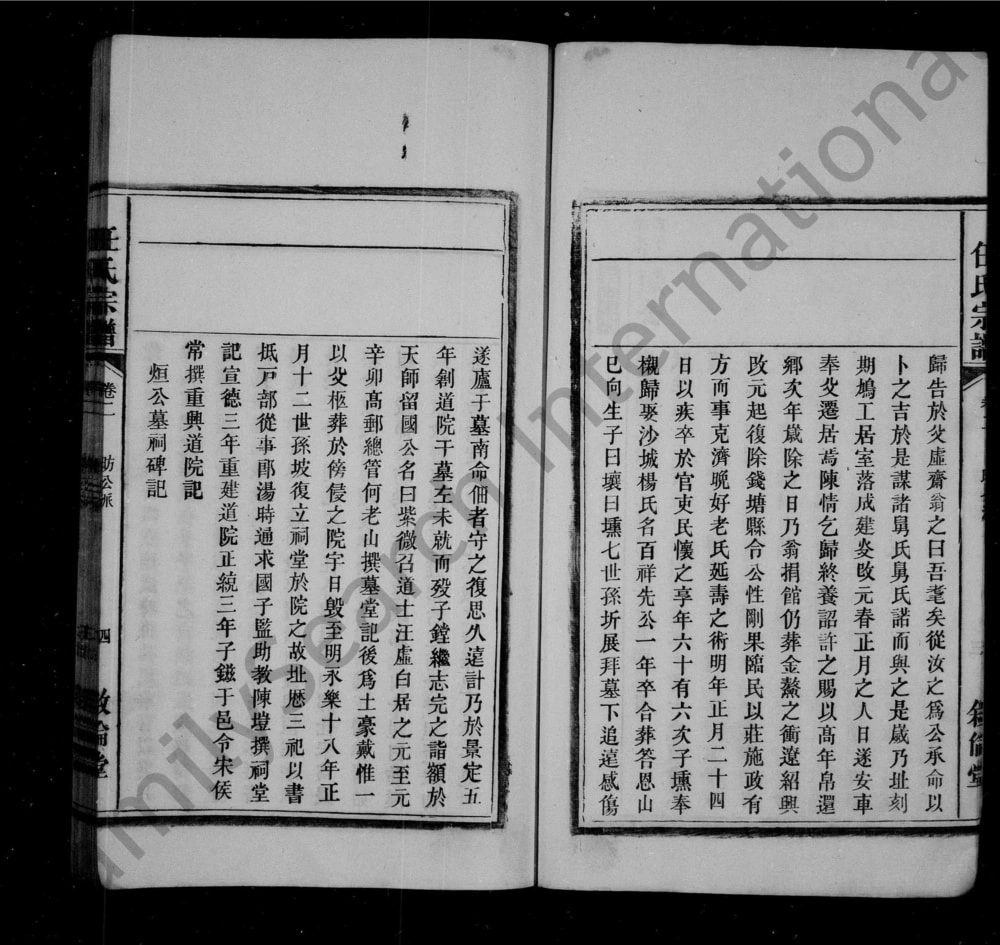 任氏宗譜
歸告於父虛齋翁之曰吾耄矣從汝之爲公承命以
卜之吉於是謀諸舅氏舅氏諾而與之是歲乃址刻
期鳩工居室落成建炎改元春正月之人日遂安車
奉父遷居焉陳情乞歸終養詔許之賜以高年帛還
鄉次年歲除之日乃翁捐館仍葬金鰲之衝遼紹興
改元起復除錢塘縣令公性剛果臨民以莊施政有
方而事克濟晚好老氏延壽之術明年正月二十四
日以疾卒於官吏民懷之享年六十有六次子壎奉
櫬歸娶沙城楊氏名百祥先公一年卒合葬答恩山
巳向生子曰壤曰壎七世孫圻展拜墓下追遠感傷
遂廬于墓南命佃者守之復思久遠計乃於景定五
年創道院于墓左未就而歿子鏜繼志完之詣額於
天師留國公名曰紫微召道士汪虛白居之元至元
辛卯高郵總管何老山撰墓堂記後爲土豪戴惟一
以父柩葬於傍侵之院宇日毀至明永樂十八年正
月十二世孫坡復立祠堂於院之故址厯三祀以書
抵戶部從事郎湯時通求國子監助教陳璒撰祠堂
記宣德三年重建道院正統三年子鎡于邑令朱侯
常撰重興道院記
烜公墓祠碑記
任氏宗譜
卷二
昉公派
四
敘倫堂